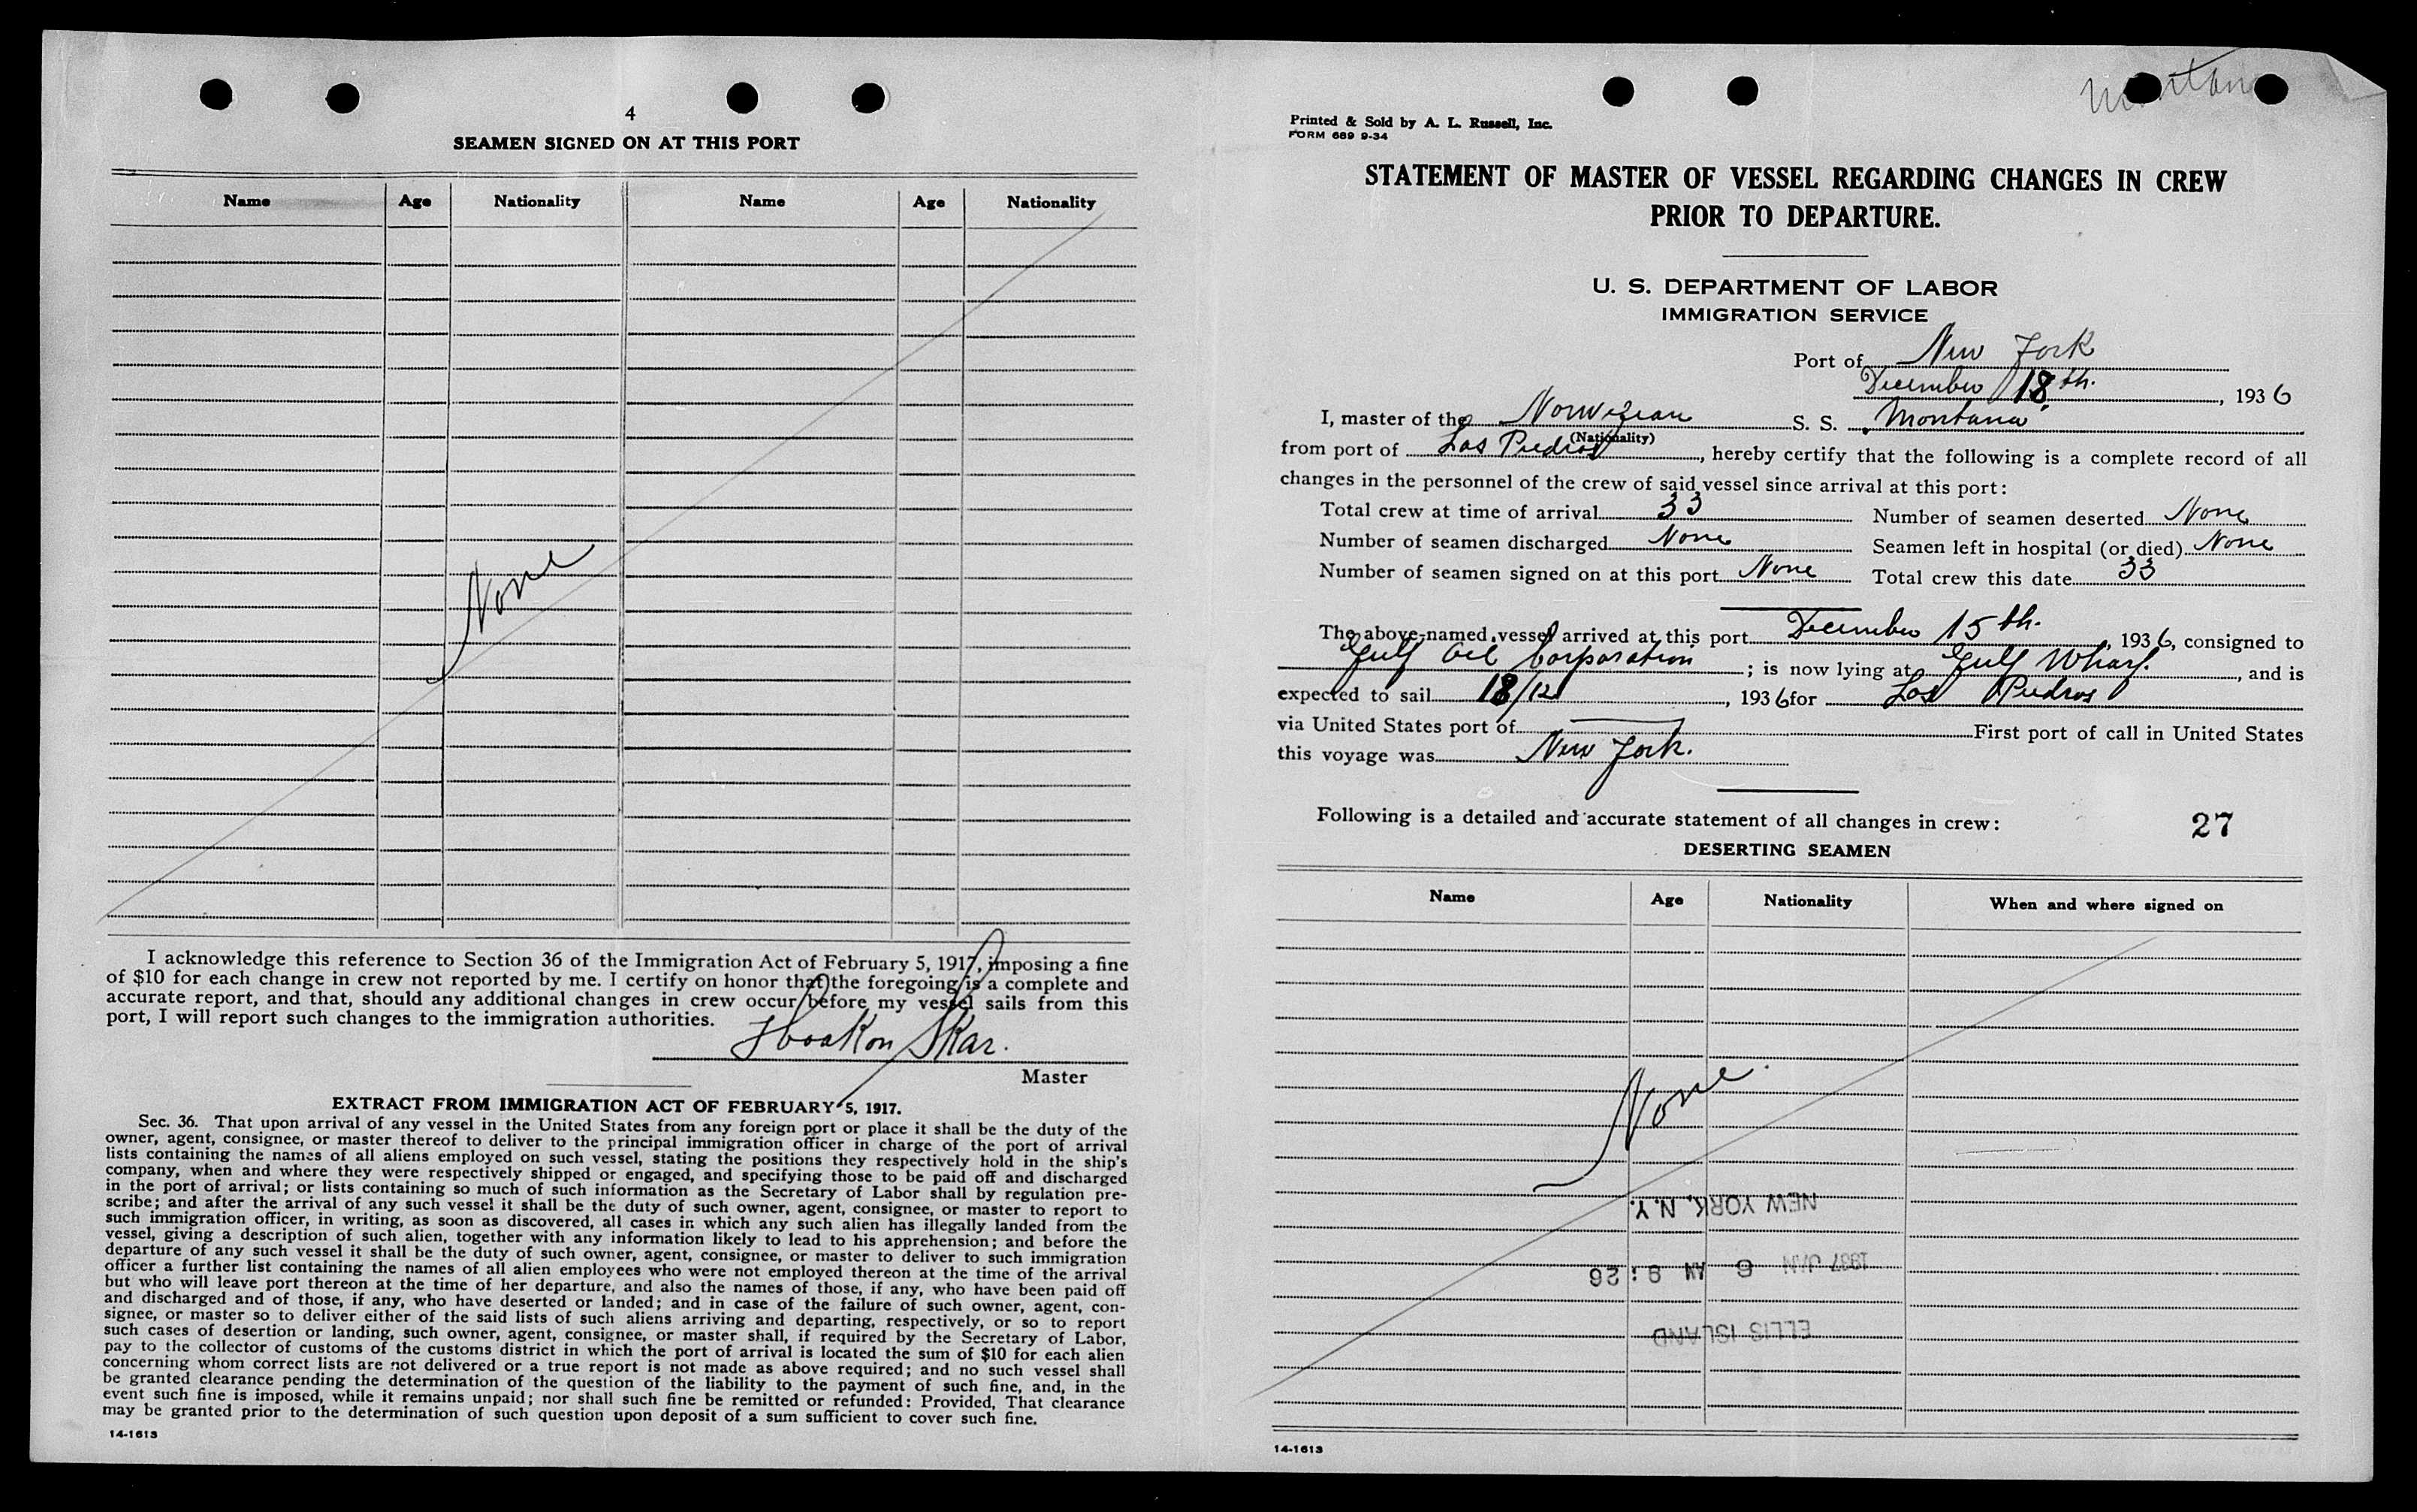 4
SEAMEN SIGNED ON AT THIS PORT
Name Age Nationality Name Age Nationality
None
I acknowledge this reference to Section 36 of the Immigration Act of February 5, 1917, imposing a fine
of $10 for each change in crew not reported by me. I certify on honor that the foregoing is a complete and
accurate report, and that, should any additional changes in crew occur before my vessel sails from this
port, I will report such changes to the immigration authorities.
Haakon Skar.
Master
EXTRACT FROM IMMIGRATION ACT OF FEBRUARY 5, 1917.
Sec. 36. That upon arrival of any vessel in the United States from any foreign port or place it shall be the duty of the
owner, agent, consignee, or master thereof to deliver to the principal immigration officer in charge of the port of arrival
lists containing the names of all aliens employed on such vessel, stating the positions they respectively hold in the ship's
company, when and where they were respectively shipped or engaged, and specifying those to be paid off and discharged
in the port of arrival; or lists containing so much of such information as the Secretary of Labor shall by regulation pre-
scribe; and after the arrival of any such vessel it shall be the duty of such owner, agent, consignee, or master to report to
such immigration officer, in writing, as soon as discovered, all cases in which any such alien has illegally landed from the
vessel, giving a description of such alien, together with any information likely to lead to his apprehension; and before the
departure of any such vessel it shall be the duty of such owner, agent, consignee, or master to deliver to such immigration
officer a further list containing the names of all alien employees who were not employed thereon at the time of the arrival
but who will leave port thereon at the time of her departure, and also the names of those, if any, who have been paid off
and discharged and of those, if any, who have deserted or landed; and in case of the failure of such owner, agent, con-
signee, or master so to deliver either of the said lists of such aliens arriving and departing, respectively, or so to report
such cases of desertion or landing, such owner, agent, consignee, or master shall, if required by the Secretary of Labor,
pay to the collector of customs of the customs district in which the port of arrival is located the sum of $10 for each alien
concerning whom correct lists are not delivered or a true report is not made as above required; and no such vessel shall
be granted clearance pending the determination of the question of the liability to the payment of such fine, and, in the
event such fine is imposed, while it remains unpaid; nor shall such fine be remitted or refunded: Provided, That clearance
may be granted prior to the determination of such question upon deposit of a sum sufficient to cover such fine.
14-1613
Montana
Printed & Sold by A. L. Russell, Inc.
FORM 689 9-34
STATEMENT OF MASTER OF VESSEL REGARDING CHANGES IN CREW
PRIOR TO DEPARTURE.
U. S. DEPARTMENT OF LABOR
IMMIGRATION SERVICE
Port of New York
December 18th., 1936
I, master of the Norwegian S. S. Montana
(Nationality)
from port of Las Piedras, hereby certify that the following is a complete record of all
changes in the personnel of the crew of said vessel since arrival at this port:
Total crew at time of arrival 33 Number of seamen deserted None
Number of seamen discharged None Seamen left in hospital (or died) None
Number of seamen signed on at this port None Total crew this date 33
The above-named vessel arrived at this port December 15th., 1936, consigned to
Gulf Oil Corporation; is now lying at Gulf Wharf., and is
expected to sail 18/12, 1936 for Las Piedras
via United States port of First port of call in United States
this voyage was New York.
Following is a detailed and accurate statement of all changes in crew: 27
DESERTING SEAMEN
Name Age Nationality When and where signed on
None
NEW YORK, N.Y.
1937 JAN 6 AM 9:26
ELLIS ISLAND
14-1613